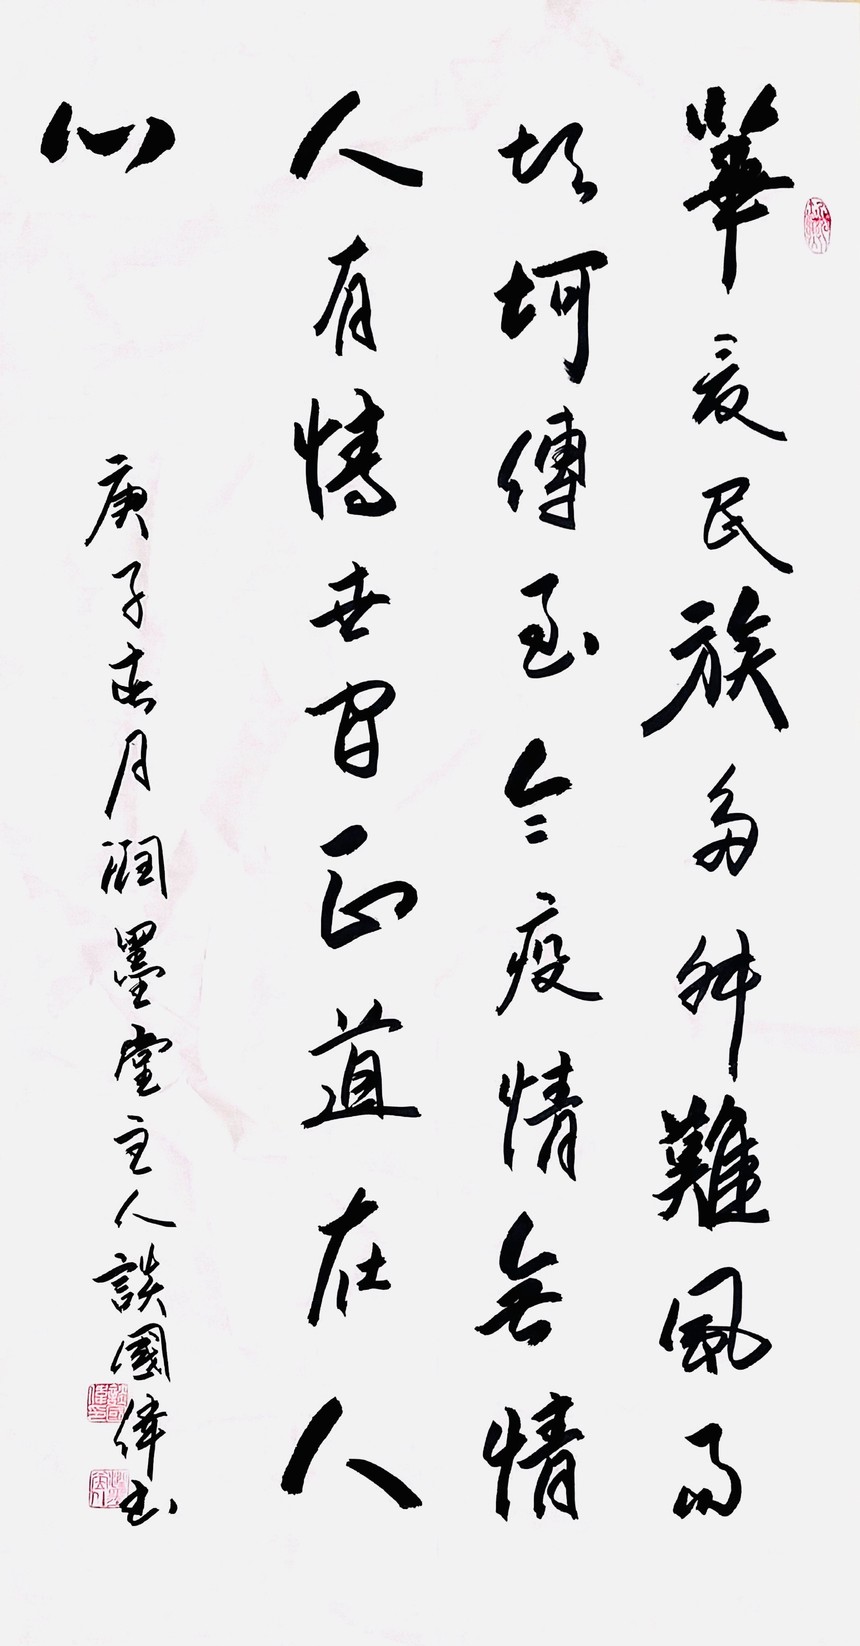 華夏民族多舛難風雨
坎坷傳至今疫情無情
人有情世間正道在人
心
庚子春月潤墨堂主人談國偉書